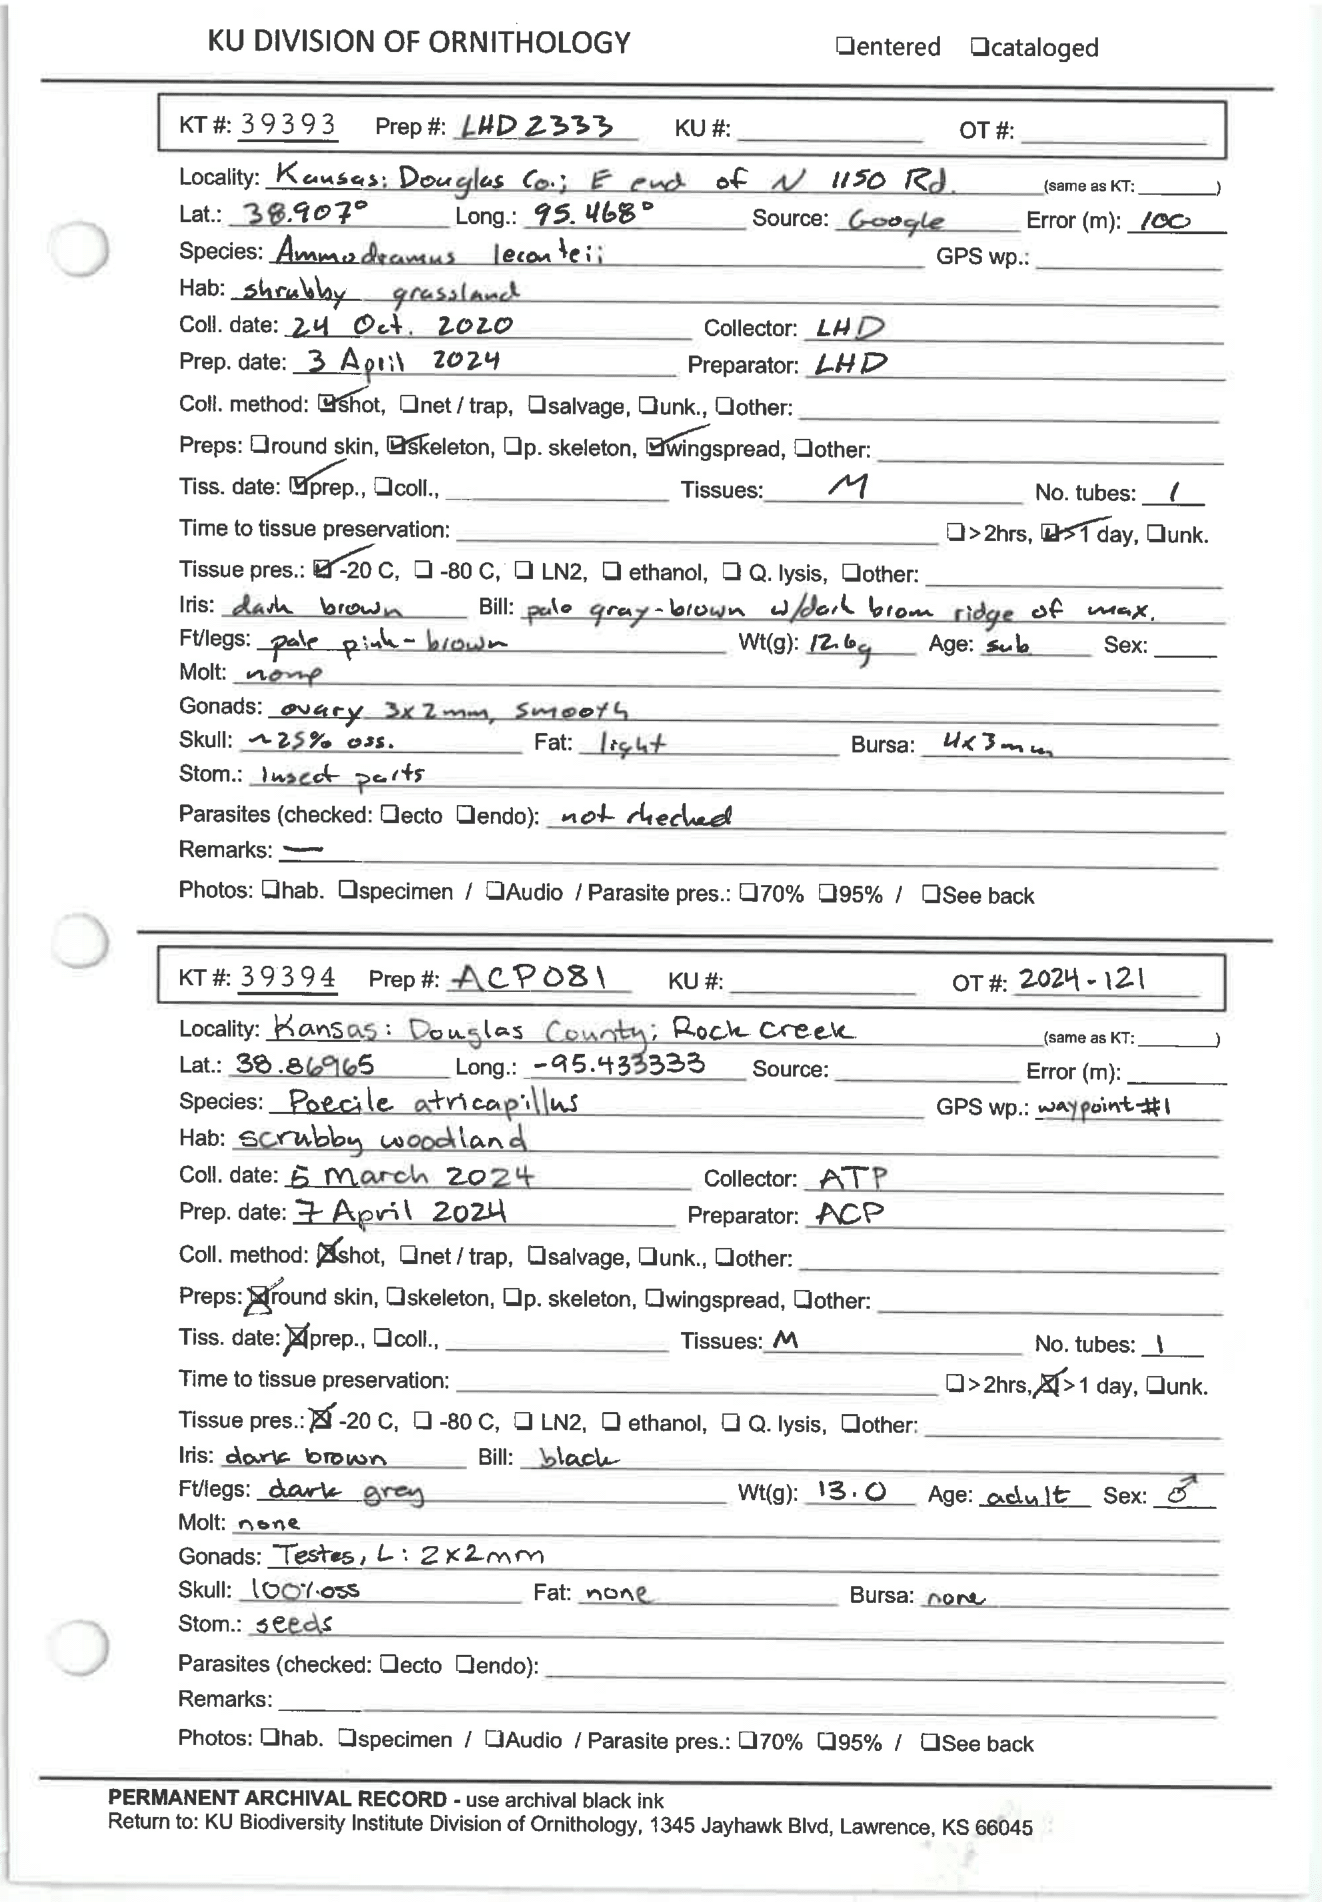 KU DIVISION OF ORNITHOLOGY ☐entered ☐cataloged
KT #: 39393 Prep #: LHD 2333 KU #: OT #:
Locality: Kansas: Douglas Co.; E end of N 1150 Rd. (same as KT: )
Lat.: 38.907° Long.: 95.468° Source: Google Error (m): 100
Species: Ammodramus leconteii GPS wp.:
Hab: shrubby grassland
Coll. date: 24 Oct. 2020 Collector: LHD
Prep. date: 3 April 2024 Preparator: LHD
Coll. method: ☑shot, ☐net / trap, ☐salvage, ☐unk., ☐other:
Preps: ☐round skin, ☑skeleton, ☐p. skeleton, ☑wingspread, ☐other:
Tiss. date: ☑prep., ☐coll., Tissues: M No. tubes: 1
Time to tissue preservation: ☐>2hrs, ☑>1 day, ☐unk.
Tissue pres.: ☑ -20 C, ☐ -80 C, ☐ LN2, ☐ ethanol, ☐ Q. lysis, ☐other:
Iris: dark brown Bill: pale gray-brown w/dark brown ridge of max.
Ft/legs: pale pink-brown Wt(g): 12.6g Age: sub Sex:
Molt: none
Gonads: ovary 3x2mm, smooth
Skull: ~25% oss. Fat: light Bursa: 4x3mm
Stom.: Insect parts
Parasites (checked: ☐ecto ☐endo): not checked
Remarks: —
Photos: ☐hab. ☐specimen / ☐Audio / Parasite pres.: ☐70% ☐95% / ☐See back
KT #: 39394 Prep #: ACP081 KU #: OT #: 2024-121
Locality: Kansas: Douglas County; Rock Creek (same as KT: )
Lat.: 38.86965 Long.: -95.433333 Source: Error (m):
Species: Poecile atricapillus GPS wp.: waypoint #1
Hab: scrubby woodland
Coll. date: 5 March 2024 Collector: ATP
Prep. date: 7 April 2024 Preparator: ACP
Coll. method: ☒shot, ☐net / trap, ☐salvage, ☐unk., ☐other:
Preps: ☒round skin, ☐skeleton, ☐p. skeleton, ☐wingspread, ☐other:
Tiss. date: ☒prep., ☐coll., Tissues: M No. tubes: 1
Time to tissue preservation: ☐>2hrs, ☒>1 day, ☐unk.
Tissue pres.: ☒ -20 C, ☐ -80 C, ☐ LN2, ☐ ethanol, ☐ Q. lysis, ☐other:
Iris: dark brown Bill: black
Ft/legs: dark grey Wt(g): 13.0 Age: adult Sex: ♂
Molt: none
Gonads: Testes, L: 2x2mm
Skull: 100% oss Fat: none Bursa: none
Stom.: seeds
Parasites (checked: ☐ecto ☐endo):
Remarks:
Photos: ☐hab. ☐specimen / ☐Audio / Parasite pres.: ☐70% ☐95% / ☐See back
PERMANENT ARCHIVAL RECORD - use archival black ink
Return to: KU Biodiversity Institute Division of Ornithology, 1345 Jayhawk Blvd, Lawrence, KS 66045